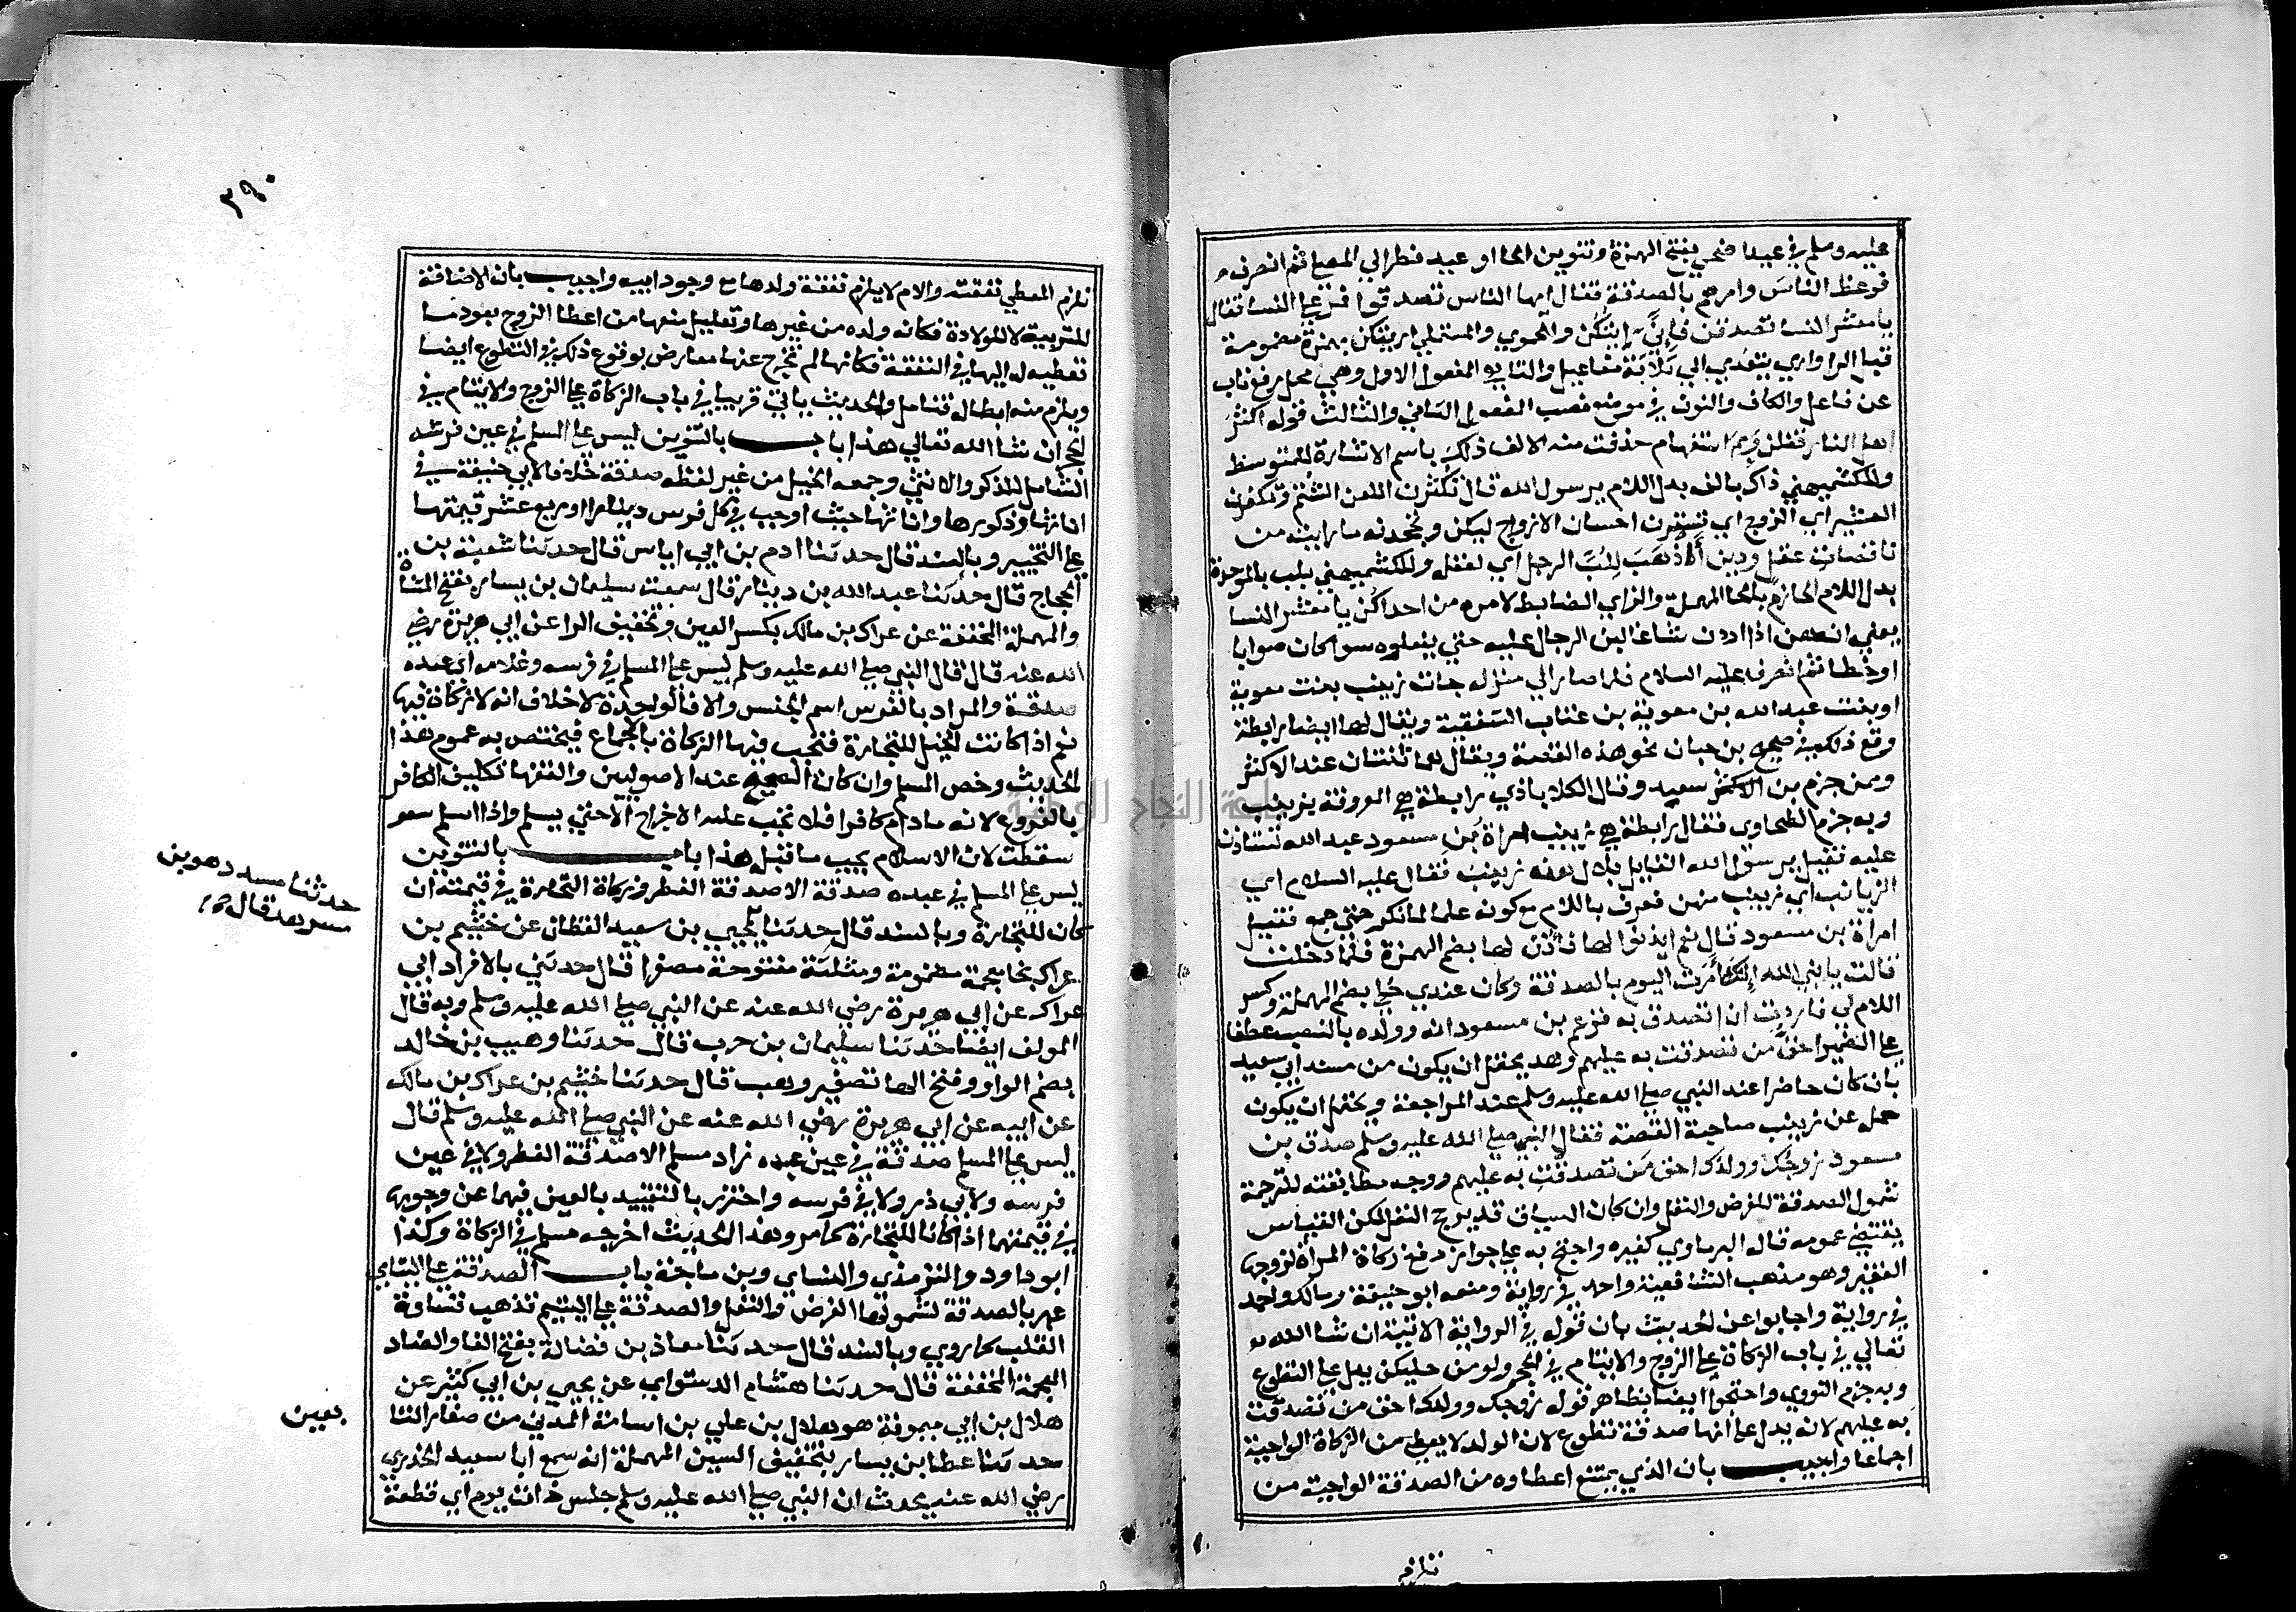 عليه وسلم في عيد اضحي بفتح الهمزة وتنوين الحا او عيد فطر الي المصلي ثم انصرف
فوعظ الناس وامرهم بالصدقة فقال ايها الناس تصدقوا فمر علي النسا فقال
يا معشر النسا تصدقن فاني رايتكن وللحموي والمستملي اريتكن بهمزة مضمومة
قبل الرا وارى يتعدي الي ثلاثة مفاعيل والتا هو المفعول الاول وهي محل رفع ناب
عن فاعل والكاف والنون في موضع نصب المفعول الثاني والثالث قوله اكثر
اهل النار فقلن وبم استفهام حذفت منه الالف ذلك باسم الاشارة للمتوسط
وللكشميهني ذاك بالف بدل اللام يرسول الله قال تكثرن اللعن الشتم وتكفرن
العشير اي الزوج اي تسترن احسان الازواج ليكن وتجحدنه ما رايت من
ناقصات عقل ودين أذهب للب الرجل اي لعقله وللكشميهني بلب بالموحدة
بدل اللام الحازم بالحا المهملة والزاي الضابط لامره من احداكن يا معشر النسا
يعني انهن اذا اردن شيا غالبن الرجال عليه حتي يفعلوه سوا كان صوابا
او خطا ثم انصرف عليه السلام فلما صار الي منزله جات زينب بنت معوية
او بنت عبد الله بن معوية بن عتاب الثقفية ويقال لها ايضا رابطة
وقع ذلك في صحيح بن حبان نحو هذه القصة ويقال هما ثنتان عند الاكثر
وممن جزم بن الاكثر سعيد وقال الكلاباذي رابطة هي المعروفة بزينب
وبه جزم الطحاوي فقال رابطة هي زينب امراة بن مسعود عبد الله تستاذن
عليه فقيل يرسول الله القايل بلال هذه زينب فقال عليه السلام اي
الزيانب اي زينب منهن فعرف باللام مع كونه علما لما نكر حتي جمع فقيل
امراة بن مسعود قال نعم ايذنوا لها فاذن لها بضم الهمزة فلما دخلت
قالت يا نبي الله انك امرت اليوم بالصدقة وكان عندي حلي بضم المهملة وكسر
اللام لي فاردت ان اتصدق به فزعم بن مسعود انه وولده بالنصب عطفا
علي الضمير احق من تصدقت به عليهم وهذ يحتمل ان يكون من مسند ابي سعيد
بان كان حاضرا عند النبي صلي الله عليه وسلم عند المراجعة ويحتمل ان يكون
حمله عن زينب صاحبة القصة فقال النبي صلي الله عليه وسلم صدق بن
مسعود زوجك وولدك احق من تصدقت به عليهم ووجه مطابقته للترجمة
شمول الصدقة للفرض والنفل وان كان السياق قد يرجح النفل لكن القياس
يقتضي عمومه قاله البرماوي كغيره واحتج به علي جواز دفع زكاة المراة لزوجها
الفقير وهو مذهب الشافعية واحمد في رواية ومنعه ابو حنيفة ومالك واحمد
في رواية واجابوا عن الحديث بان قوله في الرواية الاتية ان شا الله
تعالي في باب الزكاة علي الزوج والايتام في الحجر ولو من حليكن يدل علي التطوع
وبه جزم النووي واحتجوا ايضا بظاهر قوله زوجك وولدك احق من تصدقت
به عليهم لانه يدل علي انها صدقة تطوع لان الولد لا يعطي من الزكاة الواجبة
اجماعا واجيب بان الذي يمتنع اعطاوه من الصدقة الواجبة من
٣٩٠
تلزم المعطي نفقته والام لا يلزم نفقة ولدها مع وجود ابيه واجيب بانه الاضافة
للتربية لا للولادة فكانه ولده من غيرها وتعليل منعها من اعطا الزوج بعود ما
تعطيه له اليها في النفقة فكانها لم تخرج عنها معارض بوقوع ذلك في التطوع ايضا
ويلزم منه ابطاله فتامل والحديث ياتي قريبا في باب الزكاة علي الزوج والايتام في
الحجر ان شا الله تعالي هذا باب بالتنوين ليس علي المسلم في عين فرسه
الشامل للذكر والانثي وجمعه الخيل من غير لفظه صدقة خلافا لابي حنيفة في
اناثها وذكورها واناثها حيث اوجب في كل فرس دينارا او ربع عشر قيمتها
علي التخيير وبالسند قال حدثنا ادم بن ابي اياس قال حدثنا شعبة بن
الحجاج قال حدثنا عبد الله بن دينار قال سمعت سليمان بن يسار بفتح المثناة
والمهملة المخففة عن عراك بن مالك بكسر العين وتخفيف الرا عن ابي هريرة رضي
الله عنه قال قال النبي صلي الله عليه وسلم ليس علي المسلم في فرسه وغلامه اي عبده
صدقة والمراد بالفرس اسم الجنس والا فالواحدة لا خلاف انه لا زكاة فيها
نعم اذا كانت الخيل للتجارة فتجب فيها الزكاة بالاجماع فيختص به عموم هذا
الحديث وخص المسلم وان كان الصحيح عند الاصوليين والفقها تكليف الكافر
بالفروع لانه مادام كافرا فلا تجب عليه الاخراج الا حتي يسلم واذا اسلم
سقطت لان الاسلام يجب ما قبله هذا باب بالتنوين
ليس علي المسلم في عبده صدقة الا صدقة الفطر وزكاة التجارة في قيمته ان
كان للتجارة وبالسند قال حدثنا يحيي بن سعيد القطان عن خثيم بن
حدثنا مسدد هو بن
مسرهد قال
عراك بخا معجمة مضمومة ومثلثة مفتوحة مصغرا قال حدثني بالافراد ابي
عراك عن ابي هريرة رضي الله عنه عن النبي صلي الله عليه وسلم وبه قال
المولف ايضا حدثنا سليمان بن حرب قال حدثنا وهيب بن خالد
بضم الواو وفتح الها تصغير وهب قال حدثنا خثيم بن عراك بن مالك
عن ابيه عن ابي هريرة رضي الله عنه عن النبي صلي الله عليه وسلم قال
ليس علي المسلم صدقة في عين عبده زاد مسلم الا صدقة الفطر ولا في عين
فرسه ولابي ذر ولا في فرسه واحترز بالتقييد بالعين فيهما عن وجوبها
في قيمتهما اذا كانا للتجارة كما مر وهذ الحديث اخرجه مسلم في الزكاة وكذا
ابو داود والترمذي والنساي وبن ماجة باب الصدقة علي اليتامي
عبر بالصدقة لشمولها الفرض والنفل والصدقة علي اليتيم تذهب قساوة
القلب كما روي وبالسند قال حدثنا معاذ بن فضالة بفتح الفا والضاد
المعجمة المخففة قال حدثنا هشام الدستواي عن يحيي بن ابي كثير عن
هلال بن ابي ميمونة هو هلال بن علي بن اسامة المدني من صغار التا
بعين
حدثنا عطا بن يسار بتخفيف السين المهملة انه سمع ابا سعيد الخدري
رضي الله عنه يحدث ان النبي صلي الله عليه وسلم جلس ذات يوم اي قطعة
جامعة النجاح الوطنية